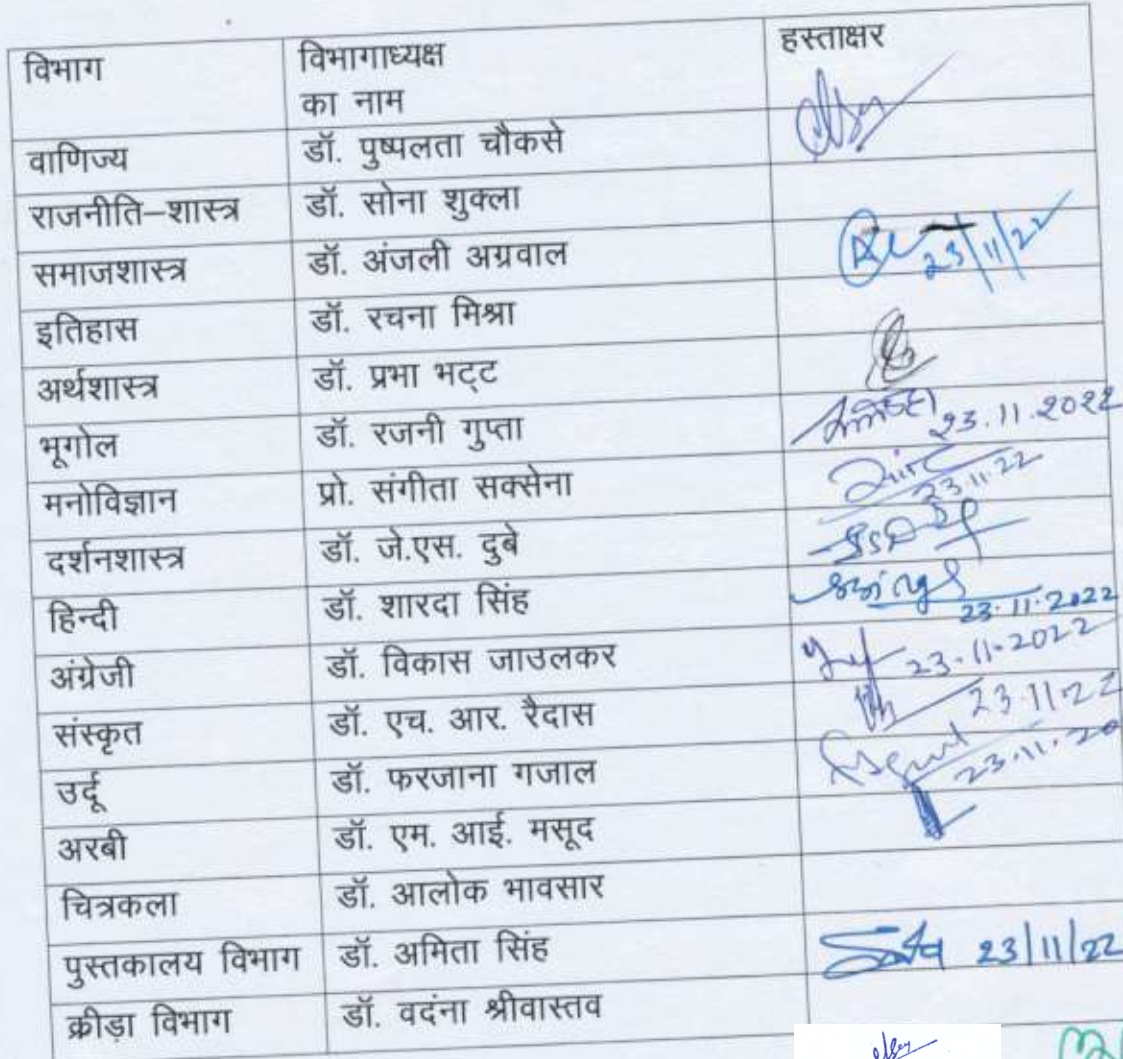 विभाग विभागाध्यक्ष हस्ताक्षर
का नाम
वाणिज्य डॉ. पुष्पलता चौकसे
राजनीति–शास्त्र डॉ. सोना शुक्ला
समाजशास्त्र डॉ. अंजली अग्रवाल 23/11/22
इतिहास डॉ. रचना मिश्रा
अर्थशास्त्र डॉ. प्रभा भट्ट
भूगोल डॉ. रजनी गुप्ता 23.11.2022
मनोविज्ञान प्रो. संगीता सक्सेना 23.11.22
दर्शनशास्त्र डॉ. जे.एस. दुबे
हिन्दी डॉ. शारदा सिंह 23.11.2022
अंग्रेजी डॉ. विकास जाउलकर 23-11-2022
संस्कृत डॉ. एच. आर. रैदास 23.11.22
उर्दू डॉ. फरजाना गजाल 23.11.20
अरबी डॉ. एम. आई. मसूद
चित्रकला डॉ. आलोक भावसार
पुस्तकालय विभाग डॉ. अमिता सिंह 23/11/22
क्रीड़ा विभाग डॉ. वदंना श्रीवास्तव